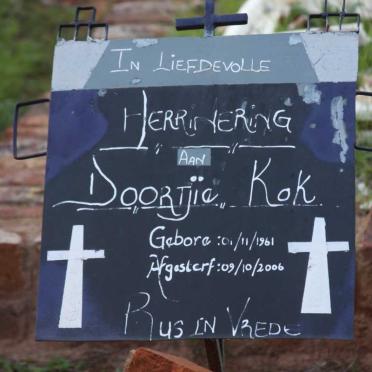 In Liefdevolle
Herrinering
Aan
Doortjie Kok
Gebore :01/11/1961
Afgesterf:09/10/2006
Rus in Vrede